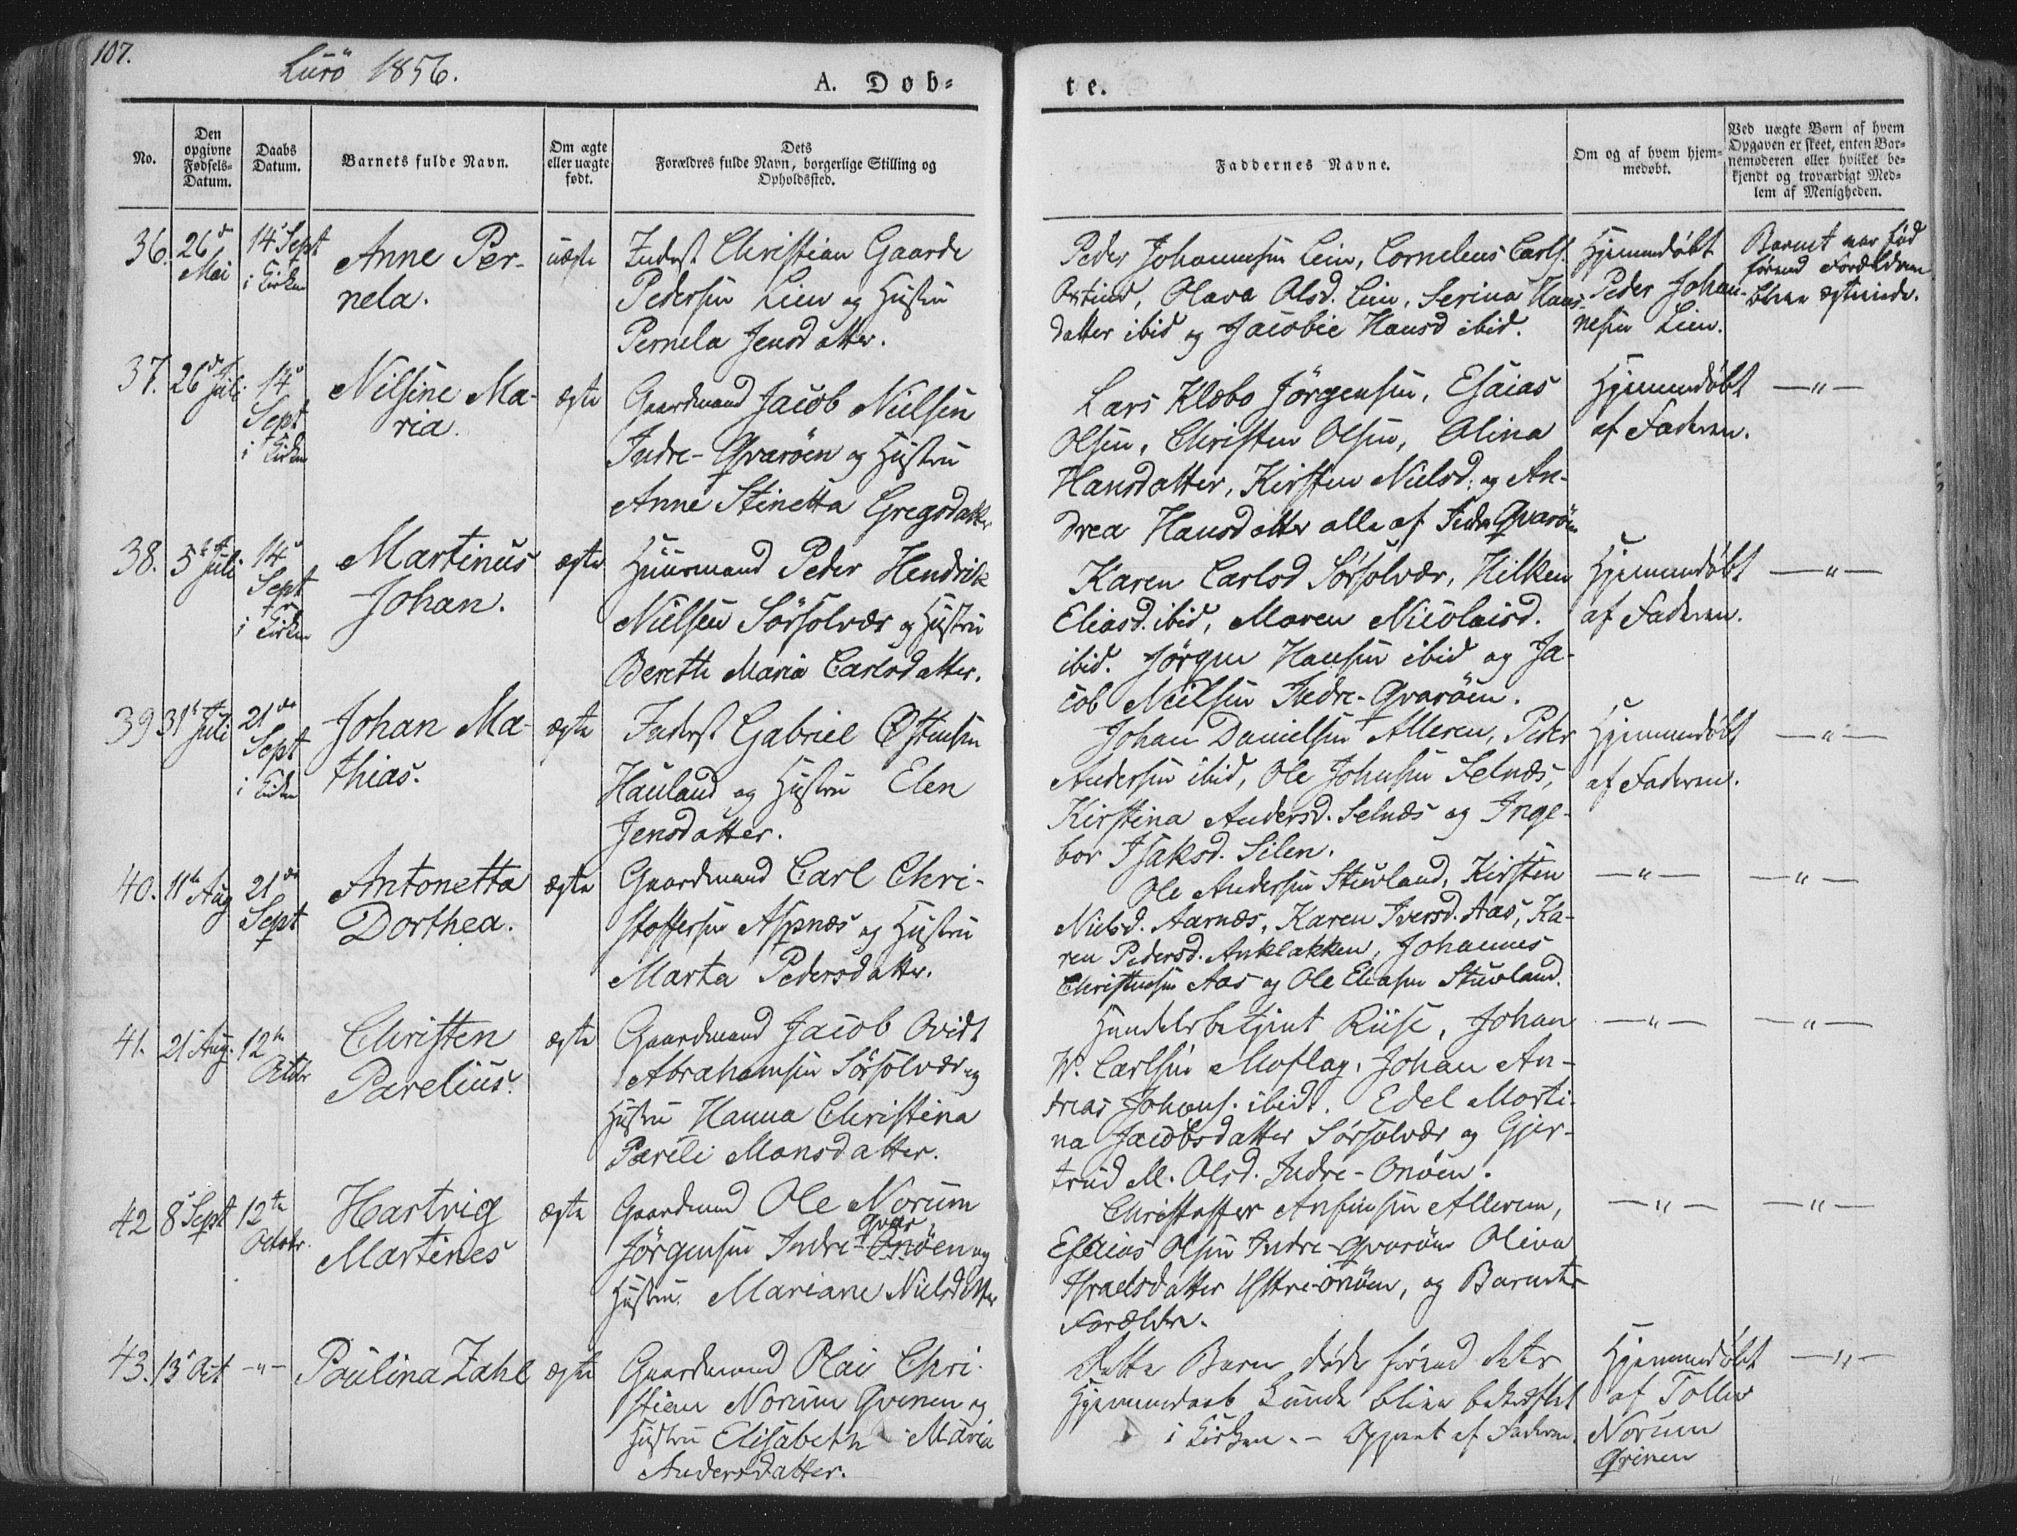 107.
Lurö 1856.
A. Døb-
te.
No.
Den opgivne Fødsels-Datum.
Daabs Datum.
Barnets fulde Navn.
Om ægte eller uægte født.
Dets Forældres fulde Navn, borgerlige Stilling og Opholdssted.
Faddernes Navne.
Om og af hvem hjem-medøbt.
Ved uægte Børn af hvem Opgaven er skeet, enten Bar-nemoderen eller hvilket be-kjendt og troværdigt Med-lem af Menigheden.
36. 26d Mai
14 Sept i Kirken
Anne Per-
nela.
uægte
Inderst Christian Gaarde
Pedersen Lien og Hustru
Pernela Jensdatter.
Peder Johannesen Lien, Cornelius Carls.
Olava Olsd. Lien, Serina Hans-
datter ibid og Jacobie Hansd ibid.
Hjemmedøbt
Peder Johan-
nesen Lien.
Barnet var fød
førend Forældrene
bleve ægteviede.
37. 26d Juli
14d Sept i Kirken
Nilsine Ma-
ria.
ægte
Gaardmand Jacob Nielsen
Indre-Qvarøen og Hustru
Anne Stinetta Gregsdatter
Lars Klæbo Jörgensen, Esaias
Olsen, Christen Olsen, Olina
Hansdatter, Kirsten Nielsd. og An-
drea Hansdatter alle af Indre Qvarøen
Hjemmedøbt
af Faderen.
—"—
38. 5te Juli
14d Sept i Kirken
Martinus
Johan.
ægte
Huusmand Peder Hendrik
Nielsen Sörsolvær og Hustru
Bereth Maria Carlsdatter.
Karen Carlsd Sörsolvær, Hilken
Eliasd. ibid, Maren Nicolaisd.
ibid. Jörgen Hansen ibid og Ja-
cob Nielsen Indre-Qvarøen.
Hjemmedøbt
af Faderen.
—"—
39 31te Juli
21de Sept i Kirken
Johan Ma-
thias.
ægte
Inderst Gabriel Østensen
Hauland og Hustru Elen
Jensdatter.
Johan Danielsen Alleren, Peder
Andersen ibid, Ole Johnsen Selnæs,
Kirstina Andersd. Selnæs og Inge-
bor Isaksd. Silen.
Hjemmedøbt
af Faderen.
—"—
40. 11te Aug
21de Sept
Antonetta
Dorthea.
ægte
Gaardmand Carl Chri-
stoffersen Aspnæs og Hustru
Marta Pedersdatter.
Ole Andersen Stuvland, Kirsten
Nielsd. Aarnæs, Karen Iversd. Aas, Ka-
ren Pedersd. Anklakken, Johannes
Christensen Aas og Ole Eliasen Stuvland.
—"—
—"—
41. 21 Aug.
12te Octbr
Christen
Parelius.
ægte
Gaardmand Jacob Ovidt
Abrahamsen Sörsolvær og
Hustru Hanna Christina
Pareli Monsdatter.
Handelsbetjent Riise, Johan
W. Carlsen Moflag, Johan An-
dreas Johans. ibidt. Edel Morti-
na Jacobsdatter Sörsolvær og Gjer-
trud M. Olsd. Indre-Onøen.
—"—
—"—
42 8 Sept
12te Octobr.
Hartvig
Martines
ægte
Gaardmand Ole Norum
Jörgensen Indre-Onøen og
Qvar
Hustru Mariane Nielsdatter
Christoffer Anfinsen Alleren,
Esaias Olsen Indre-Qvarøen Oliva
Israelsdatter Ystre-Onøen, og Barnets
Forældre.
—"—
—"—
43. 13 Oct
—"—
Paulina Zahl
ægte
Gaardmand Olai Chri-
stian Norum Qvinen og
Hustru Elisabeth Maria
Andersdatter.
Dette Barn døde førend dets
Hjemmedaab kunde blive bekræftet
i Kirken. – Opgivet af Faderen.
Hjemmedøbt
af Toller
Norum
Qvinen
—"—